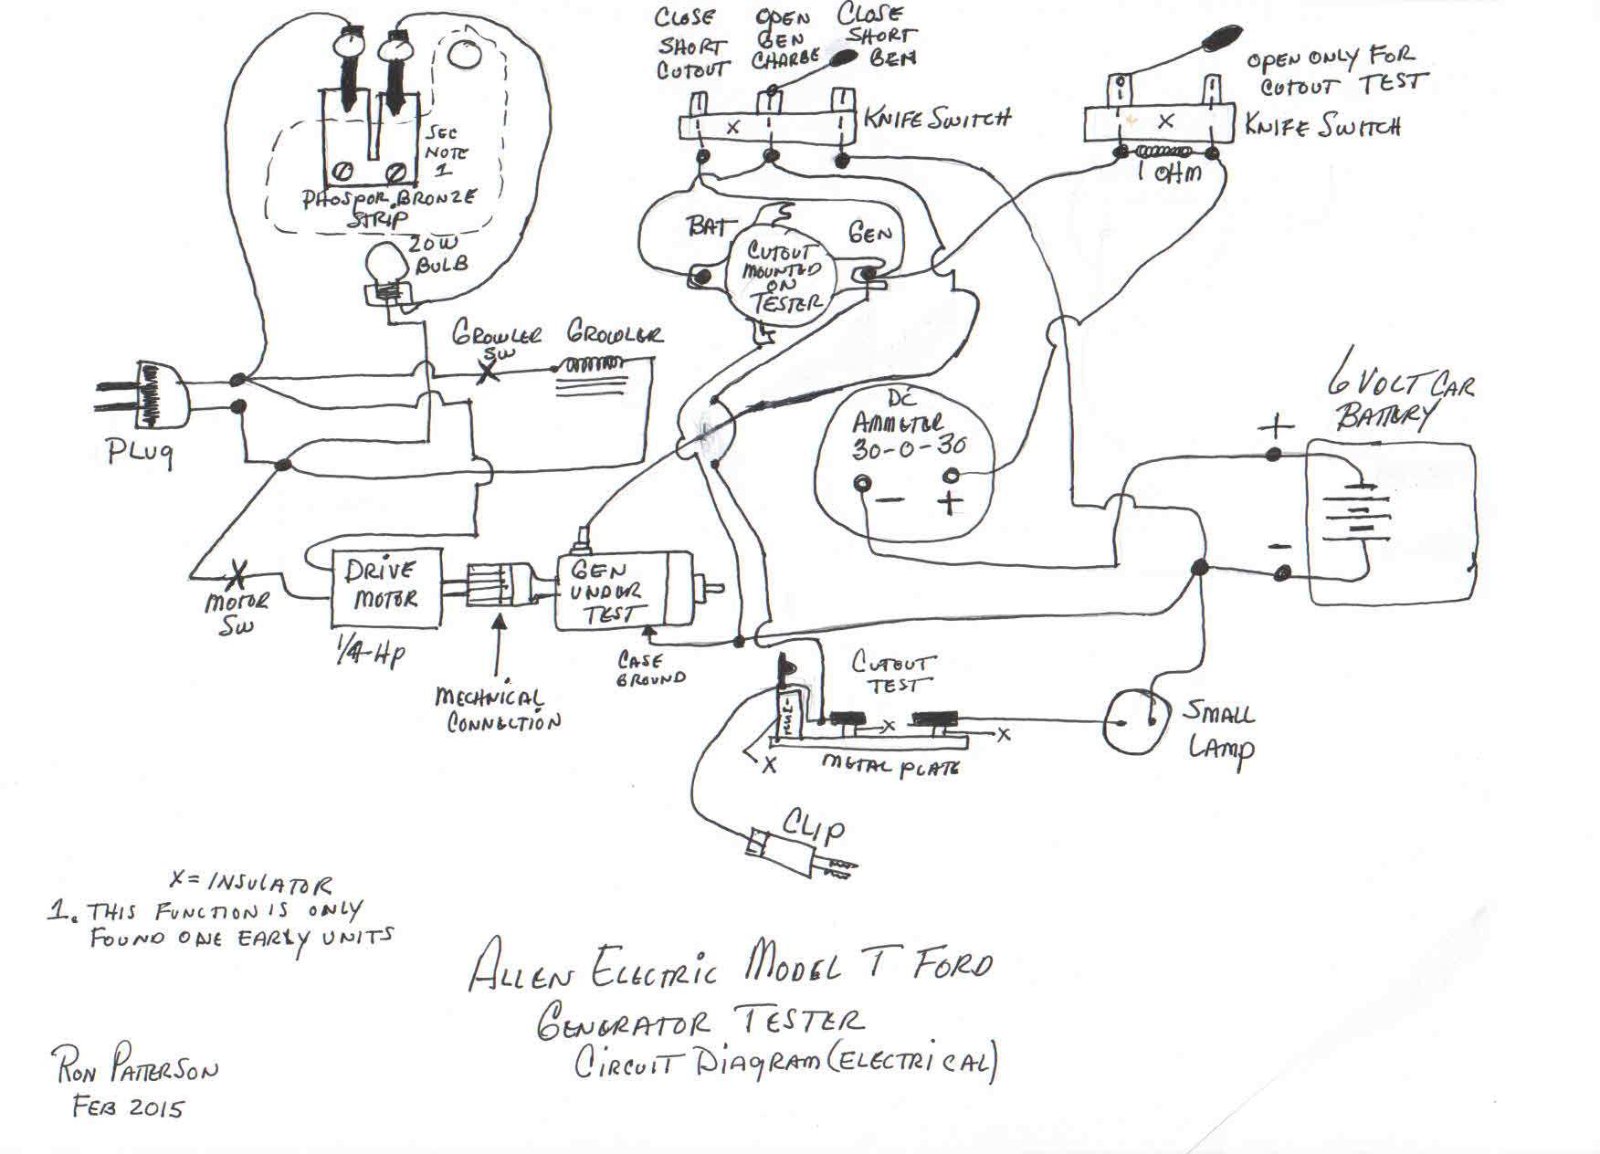 CLOSE
SHORT
CUTOUT
OPEN
GEN
CHARGE
CLOSE
SHORT
GEN
OPEN ONLY FOR
CUTOUT TEST
X
KNIFE SWITCH
X
KNIFE SWITCH
1 OHM
SEC
NOTE
1
PHOSPOR BRONZE
STRIP
20W
BULB
BAT
GEN
CUTOUT
MOUNTED
ON
TESTER
GROWLER
SW
GROWLER
PLUG
DC
AMMETER
30-0-30
- +
6 VOLT CAR
BATTERY
+
-
MOTOR
SW
DRIVE
MOTOR
1/4-HP
GEN
UNDER
TEST
MECHNICAL
CONNECTION
CASE
GROUND
CUTOUT
TEST
X
X
X
METAL PLATE
SMALL
LAMP
CLIP
X = INSULATOR
1. THIS FUNCTION IS ONLY
FOUND ONE EARLY UNITS
ALLEN ELECTRIC MODEL T FORD
GENERATOR TESTER
CIRCUIT DIAGRAM (ELECTRICAL)
RON PATTERSON
FEB 2015